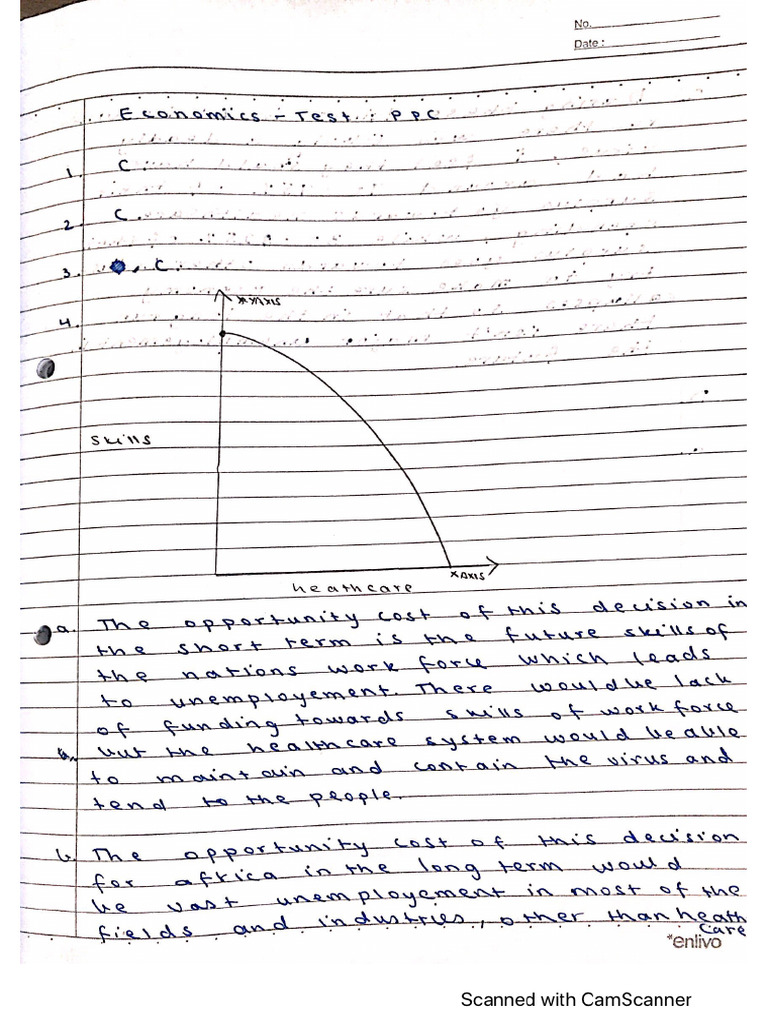 No.
Date :
Economics - Test : PPC
1. C
2. C.
3. C.
Y Axis
4.
Skills
X Axis
heathcare
a. The opportunity cost of this decision in
the short term is the future skills of
the nations work force which leads
to unemployement. There would be lack
of funding towards skills of work force
but the healthcare system would be able
to maintain and contain the virus and
tend to the people.
b. The opportunity cost of this decision
for africa in the long term would
be vast unemployement in most of the
fields and industries, other than heath
care
*enlivo
Scanned with CamScanner